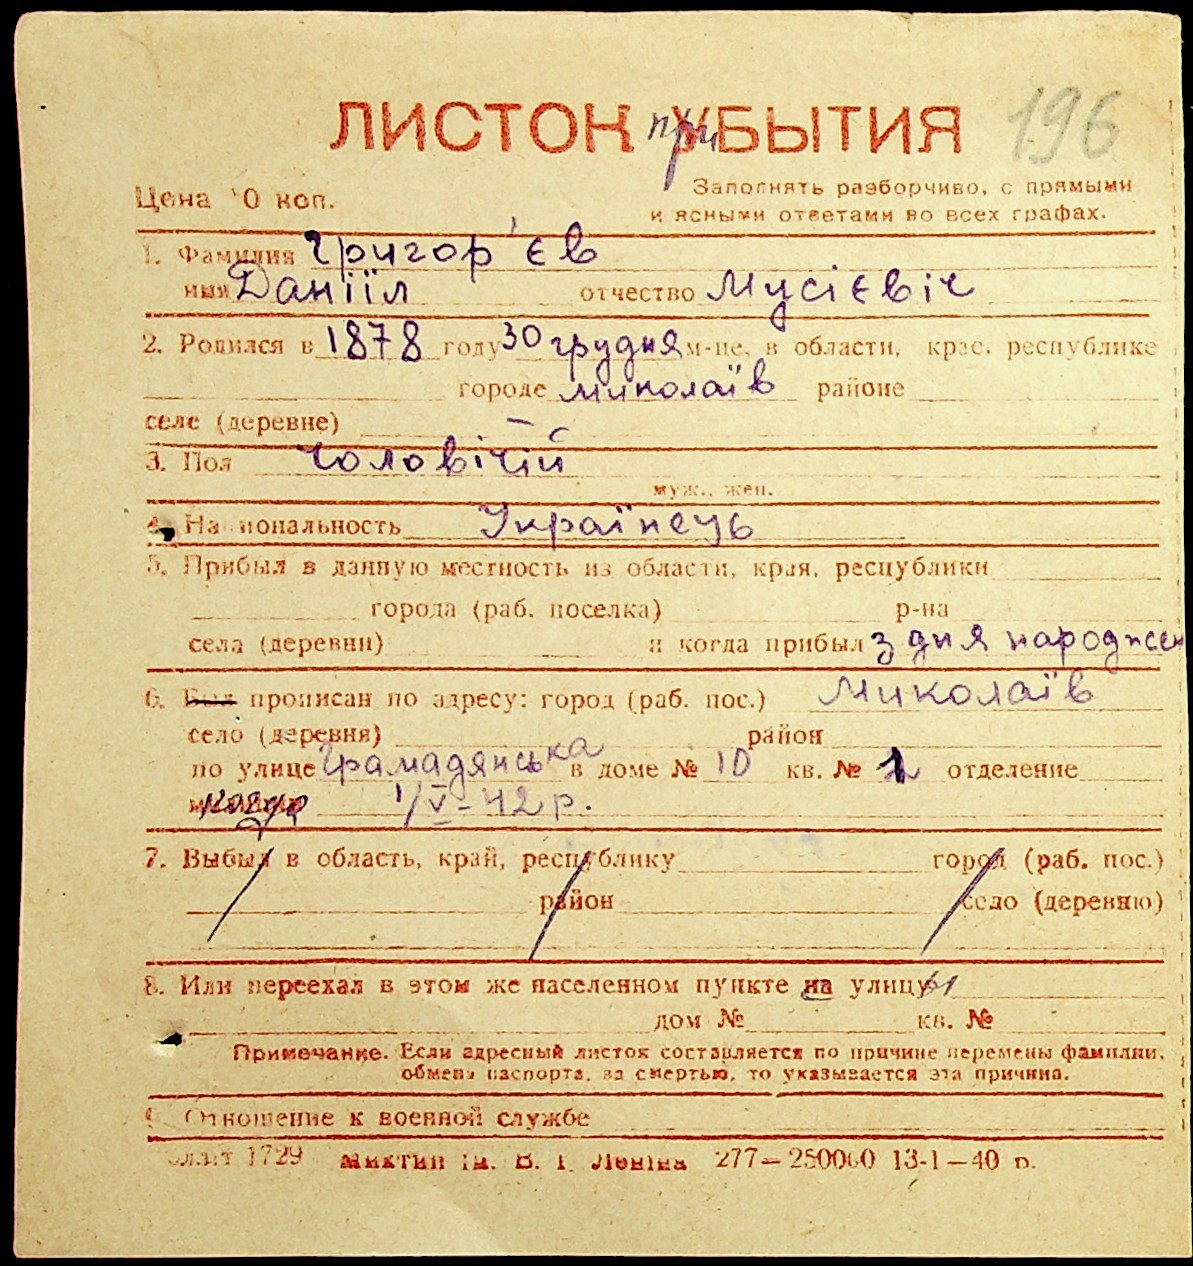 ЛИСТОК при УБЫТИЯ 196
Цена 10 коп. Заполнять разборчиво, с прямыми
и ясными ответами во всех графах.
1. Фамилия Григор'єв
имя Данііл отчество Мусієвіч
2. Родился в 1878 году 30 грудня м-це, в области, крае, республике
городе Миколаїв районе
селе (деревне) —
3. Пол Чоловічій
муж., жен.
4. Национальность Українець
5. Прибыл в данную местность из области, края, республики
города (раб. поселка) р-на
села (деревни) и когда прибыл з дня народжен
6. Был прописан по адресу: город (раб. пос.) Миколаїв
село (деревня) район
по улице Грамадянська в доме № 10 кв. № 1 отделение
когда 1/V-42 р.
7. Выбыл в область, край, республику город (раб. пос.)
район село (деревню)
8. Или переехал в этом же населенном пункте на улицу
дом № кв. №
Примечание. Если адресный листок составляется по причине перемены фамилии,
обмена паспорта, за смертью, то указывается эта причина.
9. Отношение к военной службе
1729 ім. В. І. Леніна 277—250000 13-1—40 р.